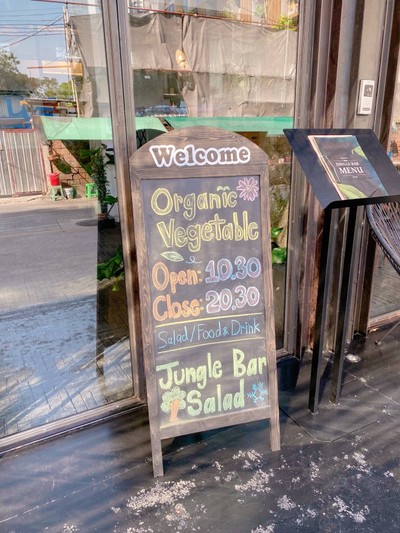 Welcome
Organic
Vegetable
Open: 10.30
Close: 20.30
Salad/Food & Drink
Jungle Bar
Salad
JUNGLE BAR
MENU